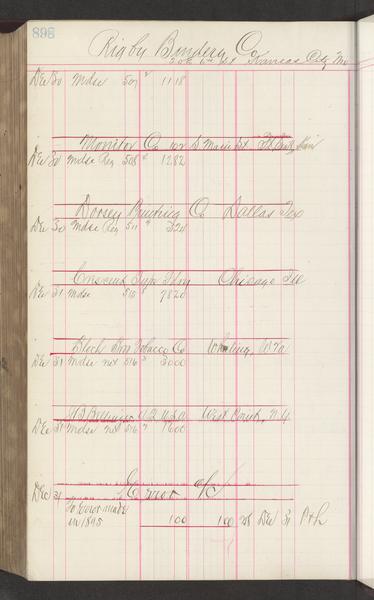 898
Rigby Bindery Co
208 6th St Kansas City Mo
Dec 30 Mdse 507 1118
Monitor Co 102 S Main St
Dec 30 Mdse Reg 508 1282
Dorsey Printing Co Dallas Tex
Dec 30 Mdse Reg 511 320
Crescent Type Fdry Chicago Ill
Dec 31 Mdse 515 7820
Bloch Bros Tobacco Co Wheeling, W Va
Dec 31 Mdse net 516 3000
West Point, N.Y.
Dec 31 Mdse net 516 7600
Error a/c
Dec 31
To Error made
in 1895 100 100 Dec 31 P&L